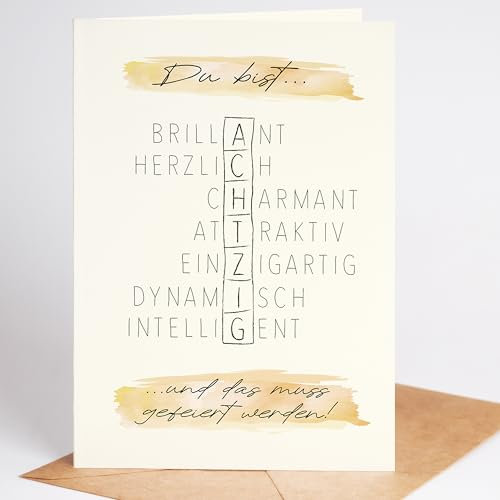 Du bist...
BRILLANT
HERZLICH
CHARMANT
ATTRAKTIV
EINZIGARTIG
DYNAMISCH
INTELLIGENT
...und das muss
gefeiert werden!